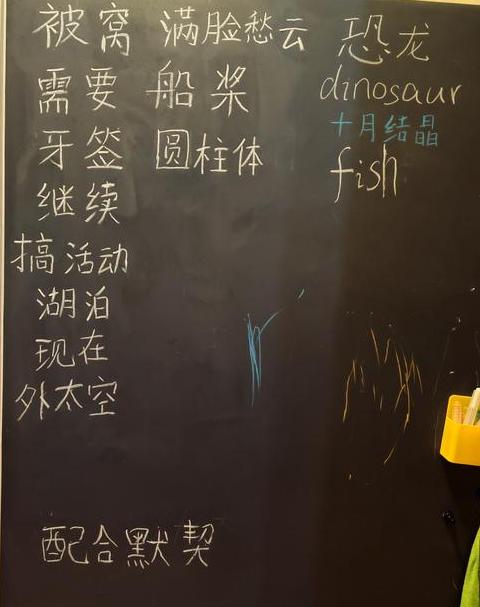 被窝
需要
牙签
继续
搞活动
湖泊
现在
外太空
配合默契
满脸愁云
船桨
圆柱体
恐龙
dinosaur
十月结晶
fish